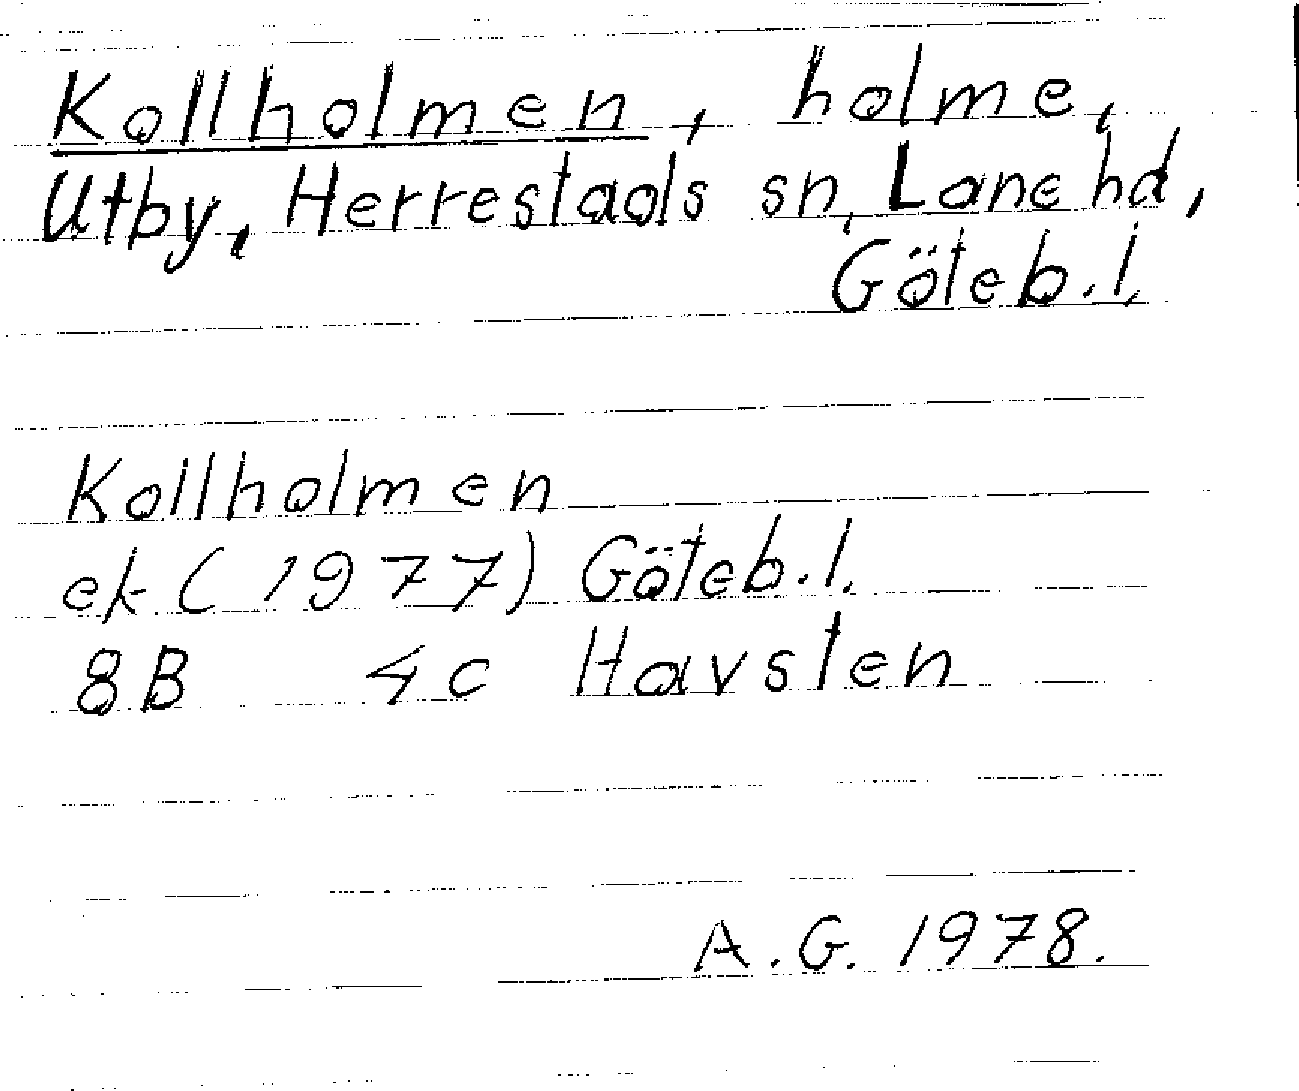 Kollholmen, holme,
Utby, Herrestads sn, Lane hd,
Göteb. l.
Kollholmen
ek (1977) Göteb. l.
8B 4c Havsten
A.G. 1978.